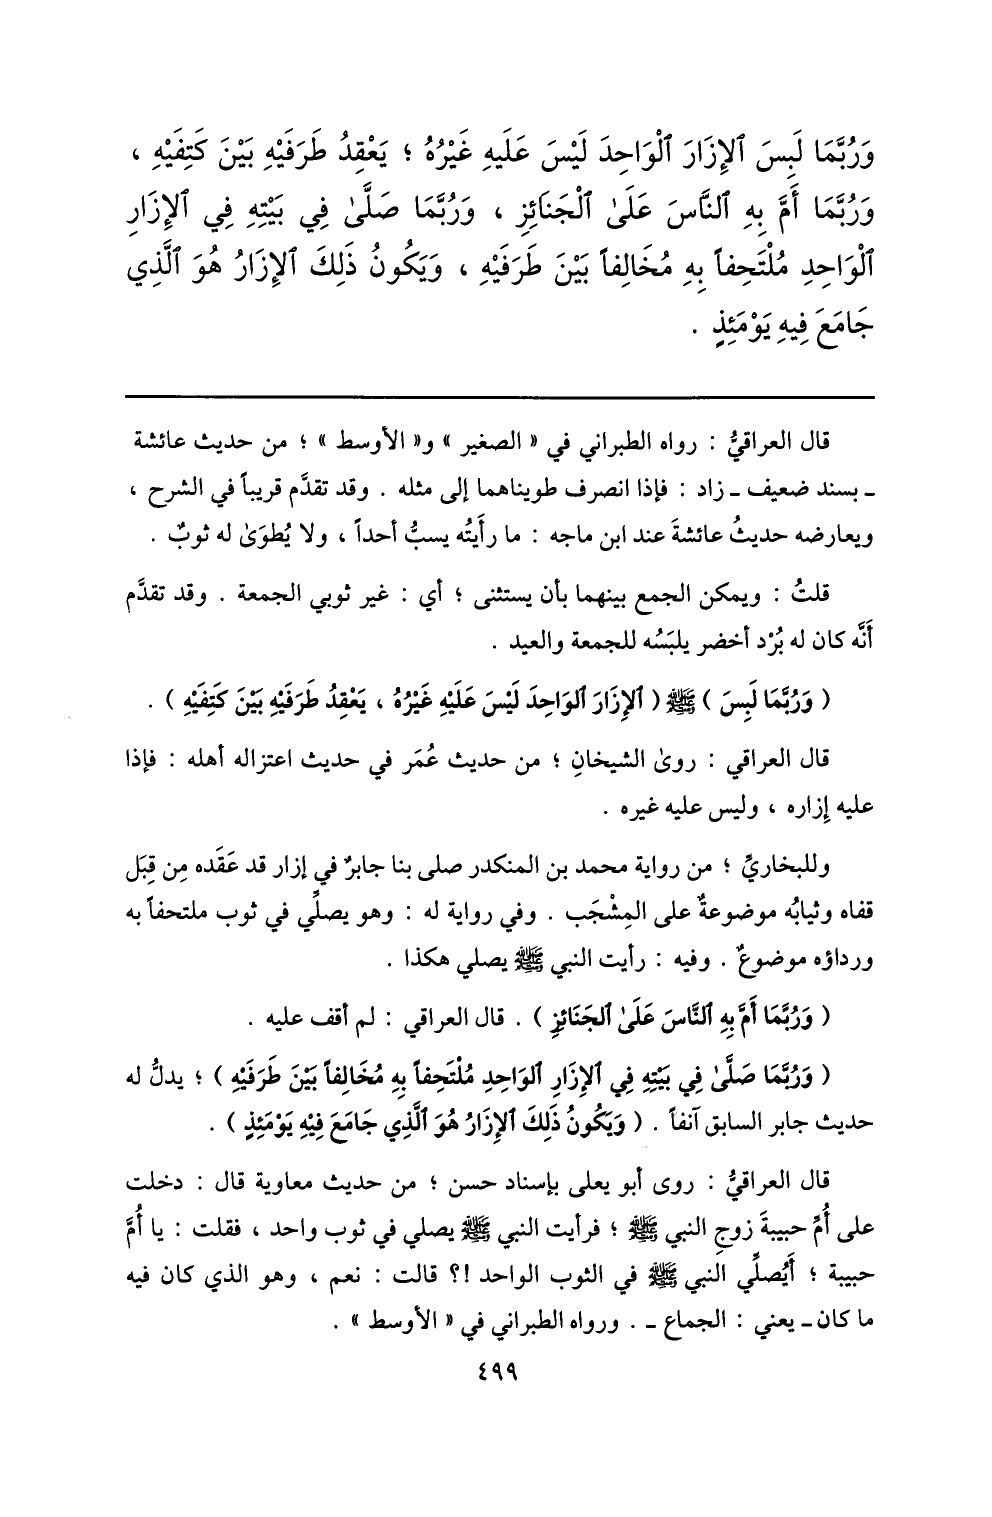 وَرُبَّمَا لَبِسَ ٱلإِزَارَ ٱلْوَاحِدَ لَيْسَ عَلَيهِ غَيْرُهُ ؛ يَعْقِدُ طَرَفَيْهِ بَيْنَ كَتِفَيْهِ ،
وَرُبَّمَا أَمَّ بِهِ ٱلنَّاسَ عَلَىٰ ٱلْجَنَائِزِ ، وَرُبَّمَا صَلَّىٰ فِي بَيْتِهِ فِي ٱلإِزَارِ
ٱلْوَاحِدِ مُلْتَحِفاً بِهِ مُخَالِفاً بَيْنَ طَرَفَيْهِ ، وَيَكُونُ ذَلِكَ ٱلإِزَارُ هُوَ ٱلَّذِي
جَامَعَ فِيهِ يَوْمَئِذٍ .
قال العراقيُّ : رواه الطبراني في « الصغير » و« الأوسط » ؛ من حديث عائشة
ـ بسند ضعيف ـ زاد : فإذا انصرف طويناهما إلى مثله . وقد تقدَّم قريباً في الشرح ،
ويعارضه حديثُ عائشةَ عند ابن ماجه : ما رأَيتُه يسبُّ أحداً ، ولا يُطوَىٰ له ثوبٌ .
قلتُ : ويمكن الجمع بينهما بأن يستثنى ؛ أي : غير ثوبي الجمعة . وقد تقدَّم
أَنَّه كان له بُرْد أخضر يلبَسُه للجمعة والعيد .
( وَرُبَّمَا لَبِسَ ) ﷺ ( ٱلإِزَارَ ٱلوَاحِدَ لَيْسَ عَلَيْهِ غَيْرُهُ ، يَعْقِدُ طَرَفَيْهِ بَيْنَ كَتِفَيْهِ ) .
قال العراقي : روىٰ الشيخانِ ؛ من حديث عُمَر في حديث اعتزاله أهله : فإذا
عليه إِزاره ، وليس عليه غيره .
وللبخاريِّ ؛ من رواية محمد بن المنكدر صلى بنا جابرٌ في إزار قد عَقَده مِن قِبَل
قفاه وثيابُه موضوعةٌ على المِشْجَب . وفي رواية له : وهو يصلِّي في ثوب ملتحفاً به
ورداؤه موضوعٌ . وفيه : رأيت النبي ﷺ يصلي هكذا .
( وَرُبَّمَا أَمَّ بِهِ ٱلنَّاسَ عَلَىٰ ٱلجَنَائِزِ ) . قال العراقي : لم أقف عليه .
( وَرُبَّمَا صَلَّىٰ فِي بَيْتِهِ فِي ٱلإِزَارِ ٱلوَاحِدِ مُلْتَحِفاً بِهِ مُخَالِفاً بَيْنَ طَرَفَيْهِ ) ؛ يدلُّ له
حديث جابر السابق آنفاً . ( وَيَكُونُ ذَلِكَ ٱلإِزَارُ هُوَ ٱلَّذِي جَامَعَ فِيْهِ يَوْمَئِذٍ ) .
قال العراقيُّ : روى أبو يعلى بإسناد حسن ؛ من حديث معاوية قال : دخلت
على أُمِّ حبيبةَ زوجِ النبي ﷺ ؛ فرأيت النبي ﷺ يصلي في ثوب واحد ، فقلت : يا أُمَّ
حبيبة ؛ أَيُصلِّي النبي ﷺ في الثوب الواحد !؟ قالت : نعم ، وهو الذي كان فيه
ما كان ـ يعني : الجماع ـ . ورواه الطبراني في « الأوسط » .
٤٩٩